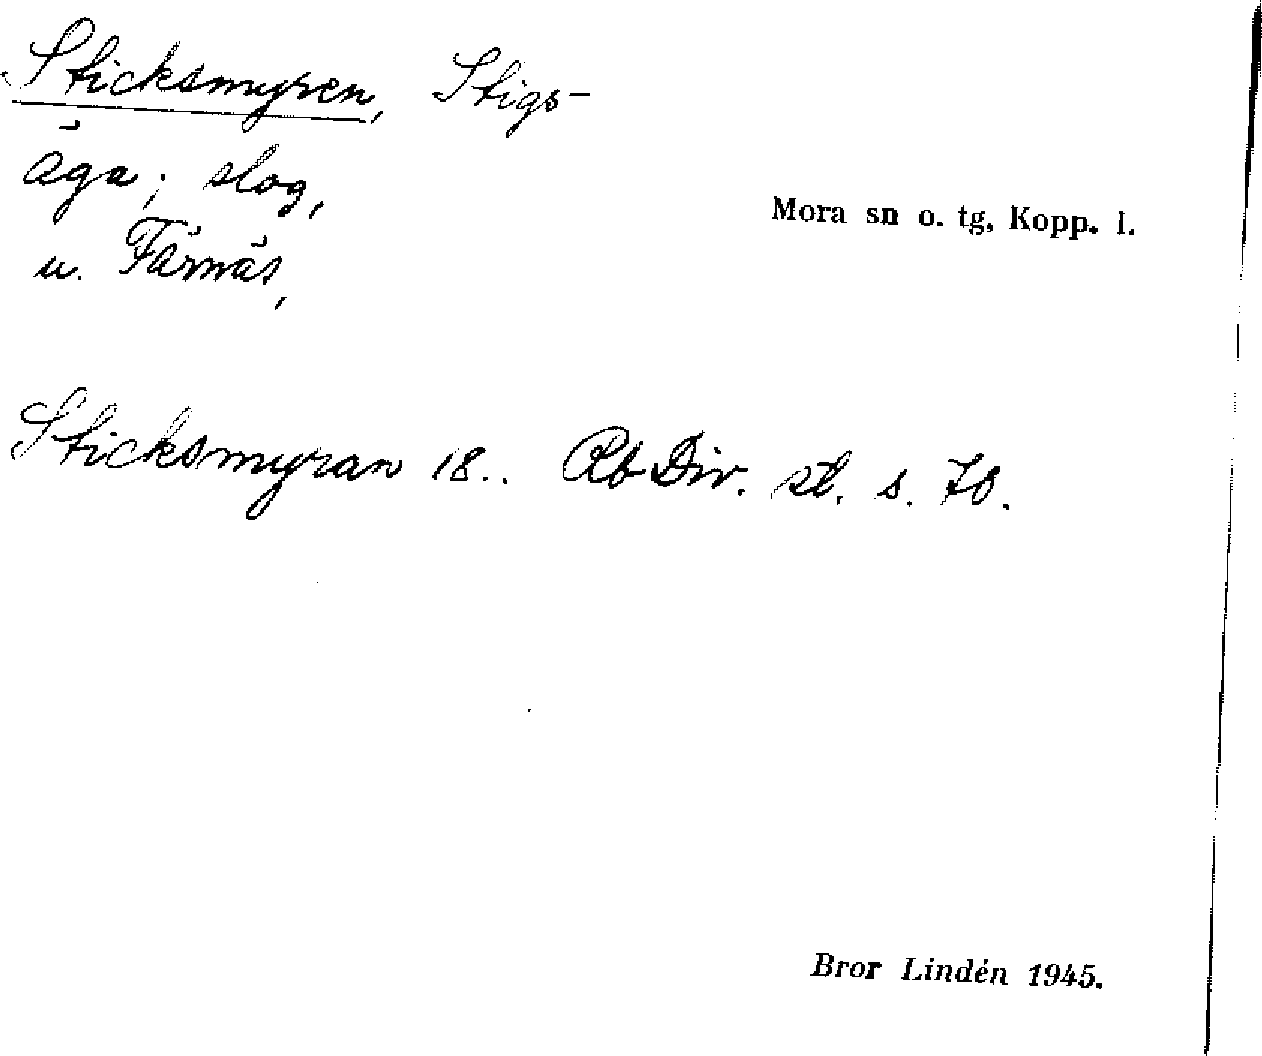 Sticksmyren, Stigs-
äga; slog,
u. Färnäs,
Mora sn o. tg, Kopp. l.
Sticksmyran 18.. Rb Div. st. s. 70.
Bror Lindén 1945.